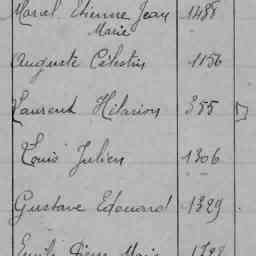 Marcel Etienne Jean 1488
Marie
Auguste Célestin 1156
Laurent Hilarion 355
Louis Julien 1306
Gustave Edouard 1329
Emile Pierre Marie